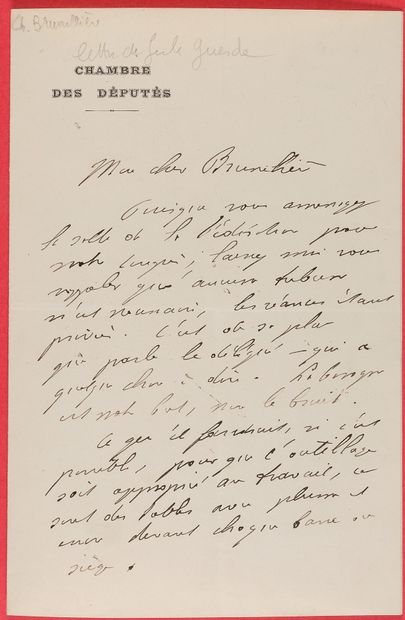 Ch. Brunellière
lettre de Jules Guesde
CHAMBRE
DES DÉPUTÉS
Mon cher Brunellière
Puisque vous aménagez
la salle de la rédaction pour
notre congrès, laissez moi vous
rappeler que aucune tribune
n'est nécessaire, les séances étant
privées. C'est de sa place
que parle le délégué — qui a
quelque chose à dire. La besogne
est notre but, non le bruit.
Ce qu'il faudrait, si c'est
possible, pour que l'outillage
soit approprié au travail, ce
sont des tables avec plumes et
encre devant chaque banc ou
siège.